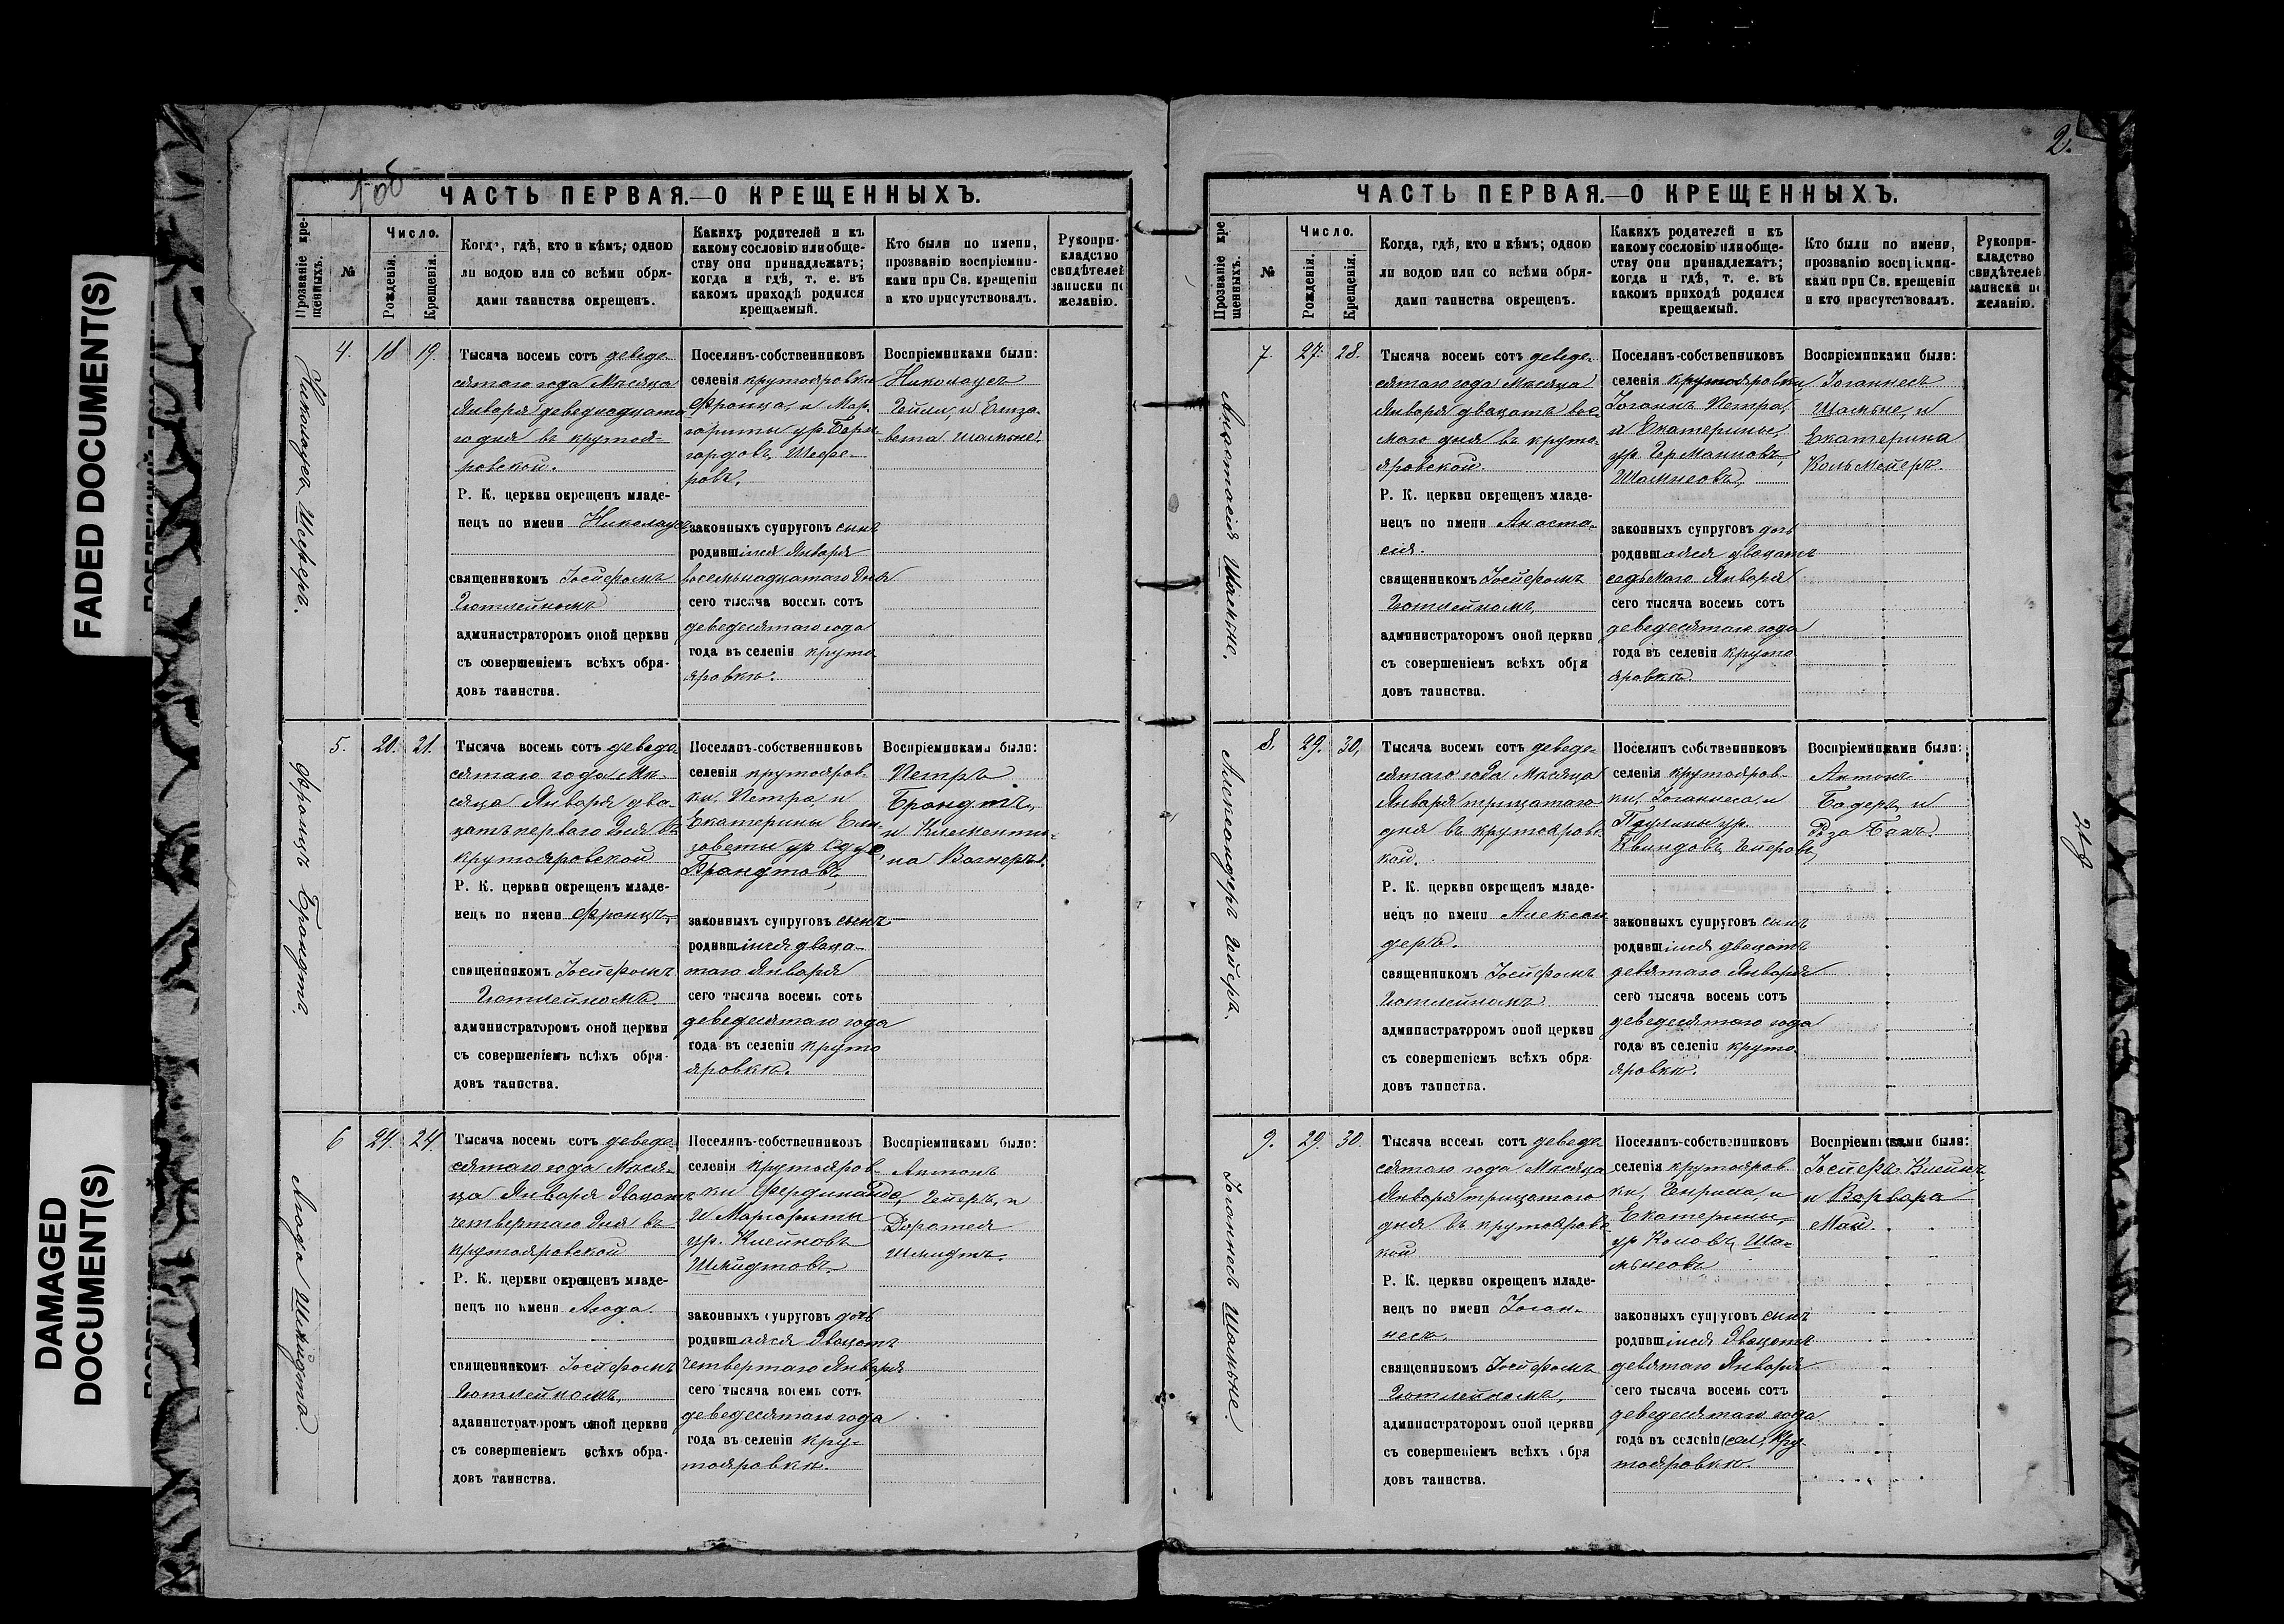 FADED DOCUMENT(S)
DAMAGED
DOCUMENT(S)
1 об
ЧАСТЬ ПЕРВАЯ.—О КРЕЩЕННЫХЪ.
Прозваніе кре-
щенныхъ.
№
Число.
Рожденія.
Крещенія.
Когда, гдѣ, кто и кѣмъ; одною
ли водою или со всѣми обря-
дами таинства окрещенъ.
Какихъ родителей и къ
какому сословію или обще-
ству они принадлежатъ;
когда и гдѣ, т. е. въ
какомъ приходѣ родился
крещаемый.
Кто были по имени,
прозванію воспріемни-
ками при Св. крещеніи
и кто присутствовалъ.
Рукопри-
кладство
свидѣтелей
записки по
желанію.
Николаусъ Шеферъ.
4.
18
19.
Тысяча восемь сотъ деведе-
сятаго года Мѣсяца
Января деведнадцата
го дня въ крутоя-
ровской.
Р. К. церкви окрещенъ младе-
нецъ по имени Николаусъ
священникомъ Іосифомъ
Готлейномъ
администраторомъ оной церкви
съ совершеніемъ всѣхъ обря-
довъ таинства.
Поселянъ-собственниковъ
селенія крутояровки
Франца, и Мар-
гариты ур. Борн-
гардовъ, Шефе-
ровъ,
законныхъ супруговъ сынъ
родившійся Января
восемьнадцатаго дня
сего тысяча восемь сотъ
деведесятаго года
года въ селеніи круто
яровкѣ.
Воспріемниками были:
Николаусъ
Гейли, и Елиза-
вета Шамьне.
Францъ Брандтъ.
5.
20.
21.
Тысяча восемь сотъ деведе-
сятаго года Мѣ-
сяца Января два-
цать перваго дня въ
крутояровской
Р. К. церкви окрещенъ младе-
нецъ по имени Францъ
священникомъ Іосифомъ
Готлейномъ.
администраторомъ оной церкви
съ совершеніемъ всѣхъ обря-
довъ таинства.
Поселянъ-собственниковъ
селенія крутояров-
ки, Петра и
Екатерины Ели-
заветы ур
Брандтовъ,
законныхъ супруговъ сынъ
родившійся дваца-
таго Января
сего тысяча восемь сотъ
деведесятаго года
года въ селеніи круто
яровкѣ.
Воспріемниками были:
Петръ
Брандтъ,
и Клементи-
на Вагнеръ.
Агада Шмидта
6
24.
24.
Тысяча восемь сотъ деведе-
сятаго года Мѣся-
ца Января двацать
четвертаго дня въ
крутояровской
Р. К. церкви окрещенъ младе-
нецъ по имени Агада.
священникомъ Іосифомъ
Готлейномъ,
администраторомъ оной церкви
съ совершеніемъ всѣхъ обря-
довъ таинства.
Поселянъ-собственниковъ
селенія крутояров-
ки Фердинанда,
и Маргариты
ур. Клейновъ
Шмидтовъ.
законныхъ супруговъ дочь
родившаяся двацать
четвертаго Января
сего тысяча восемь сотъ
деведесятаго года
года въ селеніи кру-
тояровкѣ.
Воспріемниками были:
Антонъ
Гейеръ, и
Доротея
Шмидтъ.
2.
ЧАСТЬ ПЕРВАЯ.—О КРЕЩЕННЫХЪ.
Прозваніе кре
щенныхъ.
№
Число.
Рожденія.
Крещенія.
Когда, гдѣ, кто и кѣмъ; одною
ли водою или со всѣми обря-
дами таинства окрещенъ.
Какихъ родителей и къ
какому сословію или обще-
ству они принадлежатъ;
когда и гдѣ, т. е. въ
какомъ приходѣ родился
крещаемый.
Кто были по имени,
прозванію воспріемни-
ками при Св. крещеніи
и кто присутствовалъ.
Рукопри-
кладство
свидѣтелей
записки по
желанію.
Анастасія Шамьне.
7.
27.
28.
Тысяча восемь сотъ деведе-
сятаго года Мѣсяца
Января двацать вось-
маго дня въ круто-
яровской.
Р. К. церкви окрещенъ младе-
нецъ по имени Анаста-
сія.
священникомъ Іосифомъ
Готлейномъ,
администраторомъ оной церкви
съ совершеніемъ всѣхъ обря
довъ таинства.
Поселянъ-собственниковъ
селенія крутояровки,
Іоганъ Петра,
и Екатерины,
ур. Германовъ,
Шамнеовъ,
законныхъ супруговъ дочь
родившаяся двацать
седьмаго Января
сего тысяча восемь сотъ
деведесятаго года
года въ селеніи круто
яровкѣ.
Воспріемниками были:
Іоганнесъ
Шамьне, и
Екатерина
Кольмейеръ.
Александеръ Гейеръ.
8.
29.
30.
Тысяча восемь сотъ деведе-
сятаго года Мѣсяца
Января трицатаго
дня въ крутояровс-
кой.
Р. К. церкви окрещенъ младе-
нецъ по имени Алексан
деръ.
священникомъ Іосифомъ
Готлейномъ
администраторомъ оной церкви
съ совершеніемъ всѣхъ обря
довъ таинства.
Поселянъ собственниковъ
селенія крутояров-
ки, Іоганнеса, и
Паулины ур.
Квиндовъ, Гейеровъ,
законныхъ супруговъ сынъ
родившійся двацать
девятаго Января
сего тысяча восемь сотъ
деведесятаго года
года въ селеніи круто-
яровкѣ.
Воспріемниками были:
Антонъ
Бадеръ, и
Роза Бахъ.
Іоганнесъ Шамьне.
9.
29.
30.
Тысяча восемь сотъ деведе-
сятаго года Мѣсяца
Января трицатаго
дня въ крутояровс
кой
Р. К. церкви окрещенъ младе-
нецъ по имени Іоган-
несъ.
священникомъ Іосифомъ
Готлейномъ,
администраторомъ оной церкви
съ совершеніемъ всѣхъ обря
довъ таинства.
Поселянъ-собственниковъ
селенія крутояров
ки, Генриха, и
Екатерины,
ур Коповъ, Ша-
мьнеовъ
законныхъ супруговъ сынъ
родившійся двацать
девятаго Января
сего тысяча восемь сотъ
деведесятаго года
года въ селеніи сел. Кру-
тояровкѣ.
Воспріемниками были:
Іосифъ Клейнъ,
и Варвара
Май.